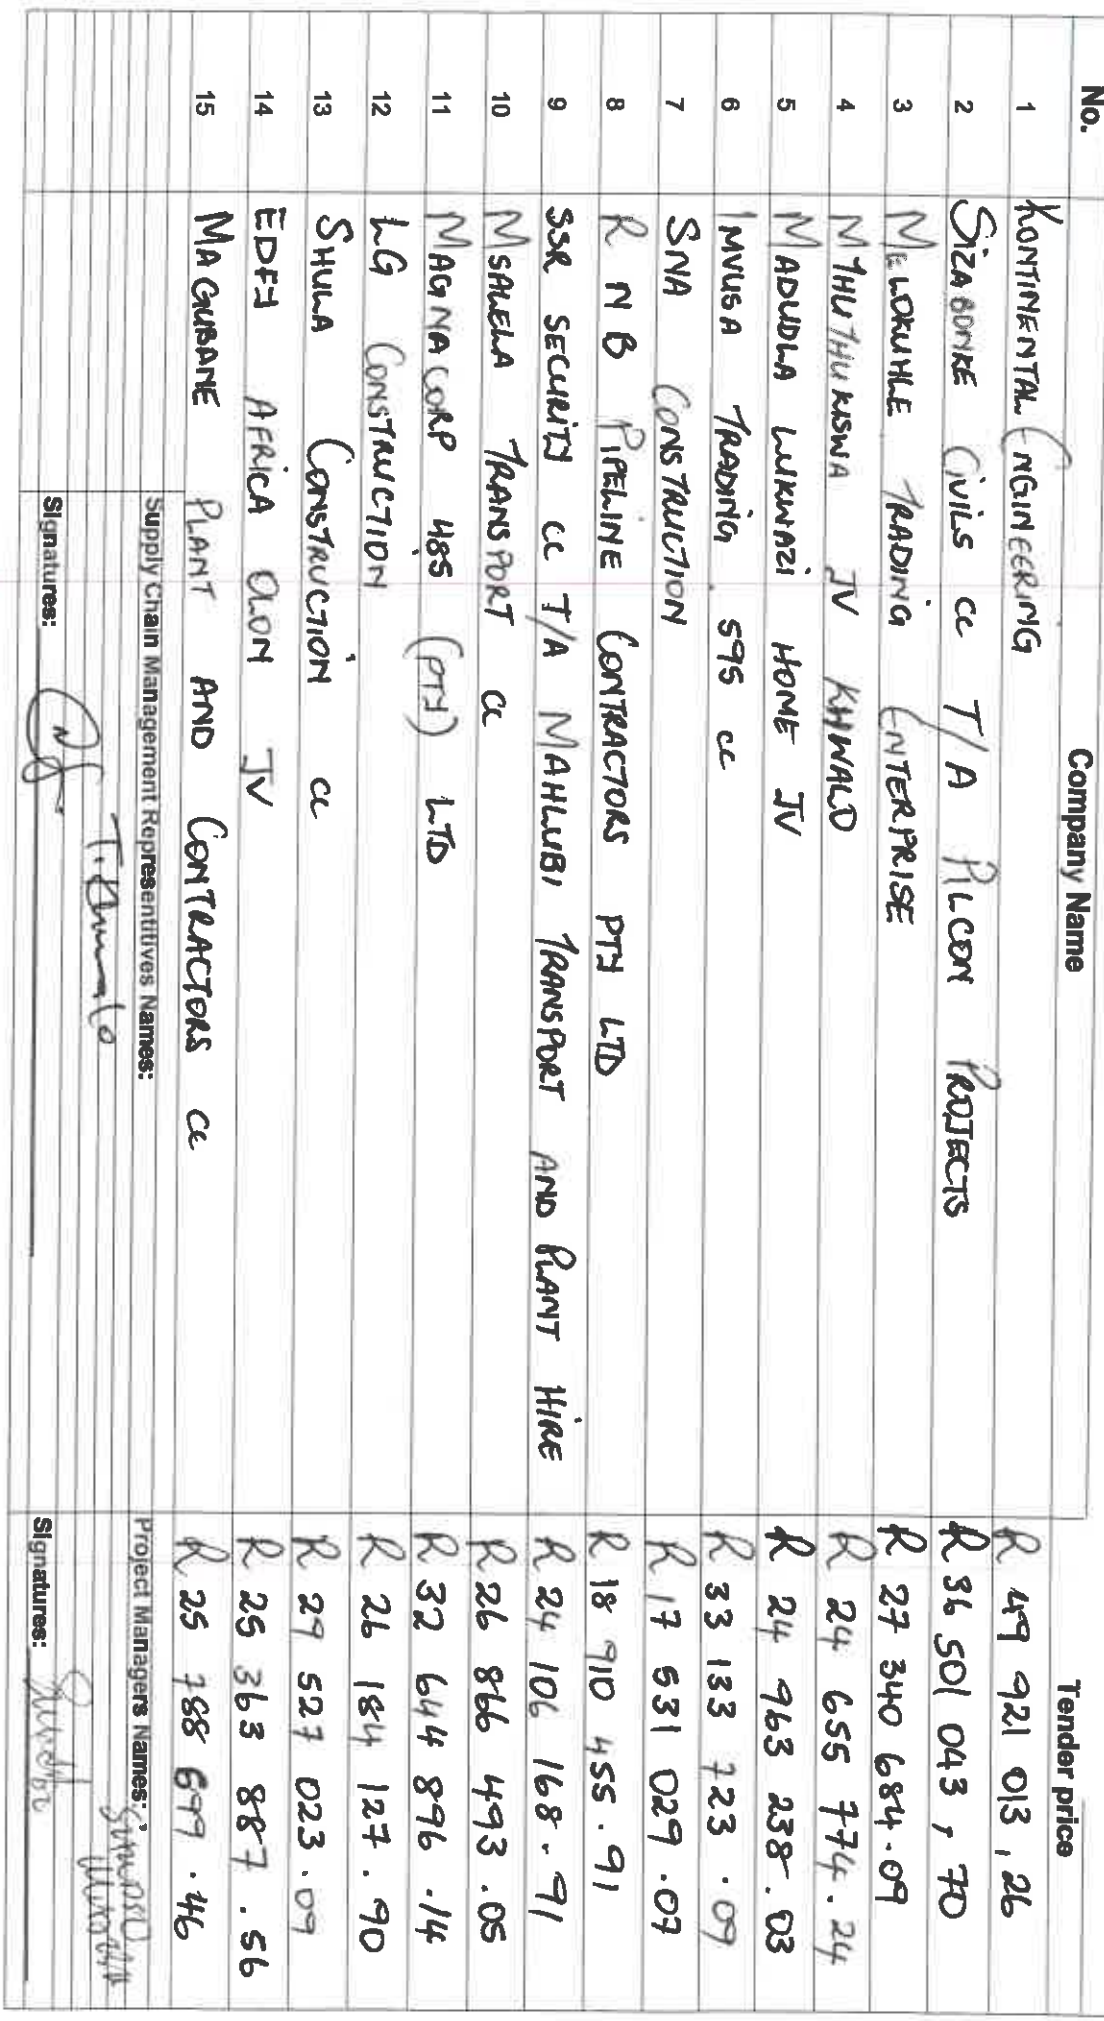 No. Company Name Tender price
1 KONTINENTAL ENGINEERING R 49 921 013,26
2 SIZABONKE CIVILS cc T/A PILCON PROJECTS R 36 501 043,70
3 MELOKUHLE TRADING ENTERPRISE R 27 340 684.09
4 MTHUTHUKISWA JV KHWALO R 24 655 774.24
5 MADUDLA LUKWAZI HOME JV R 24 963 238.03
6 IMVUSA TRADING 595 cc R 33 133 723.09
7 SNA CONSTRUCTION R 17 531 029.07
8 R N B PIPELINE CONTRACTORS PTY LTD R 18 910 455.91
9 SSR SECURITY cc T/A MAHLUBI TRANSPORT AND PLANT HIRE R 24 106 168.91
10 MSAWELA TRANSPORT cc R 26 866 493.05
11 MAGNACORP 485 (PTY) LTD R 32 644 896.14
12 LG CONSTRUCTION R 26 184 127.90
13 SHULA CONSTRUCTION cc R 29 527 023.09
14 EDFY AFRICA OLON JV R 25 363 887.56
15 MAGUBANE PLANT AND CONTRACTORS cc R 25 788 699.46
Supply Chain Management Representitives Names: Project Managers Names:
T. Khumalo
Signatures: Signatures: